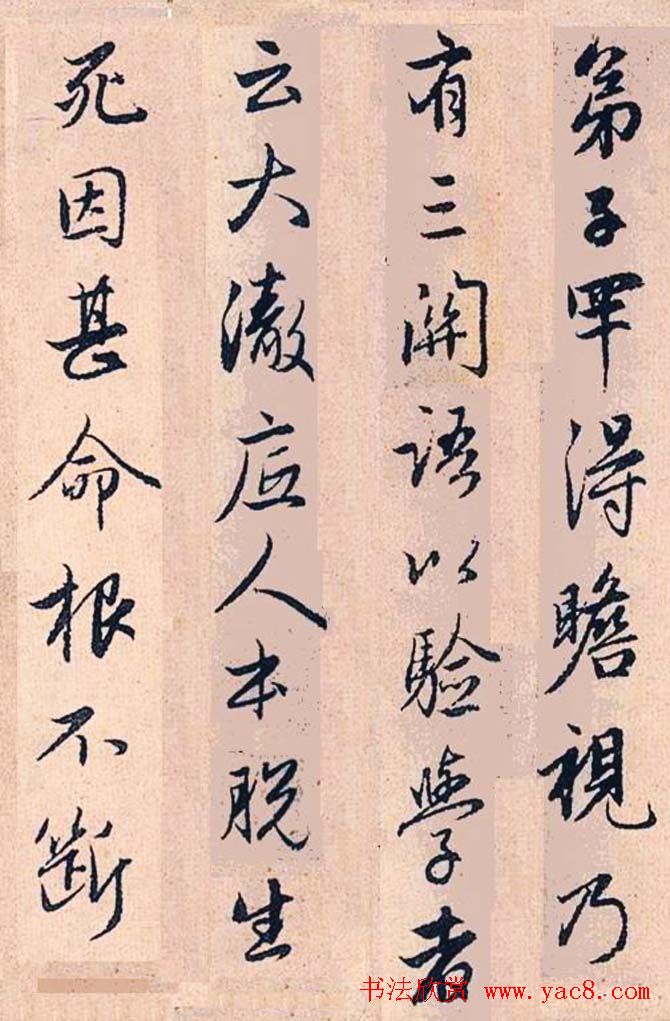 弟子罕得瞻視乃
有三關語以驗學者
云大澈底人本脱生
死因甚命根不斷
书法欣赏 www.yac8.com